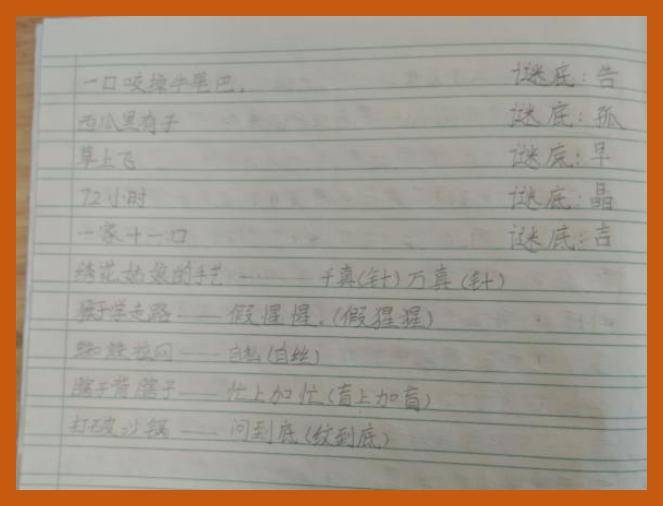 一口咬掉牛尾巴。 谜底:告
西瓜里有子 谜底:孤
草上飞 谜底:早
72小时 谜底:晶
一家十一口 谜底:吉
绣花姑娘的手艺——千真(针)万真(针)
猴子学走路——假惺惺。(假猩猩)
蜘蛛拉网——自私(自丝)
瞎子背瞎子——忙上加忙(盲上加盲)
打破沙锅——问到底(纹到底)